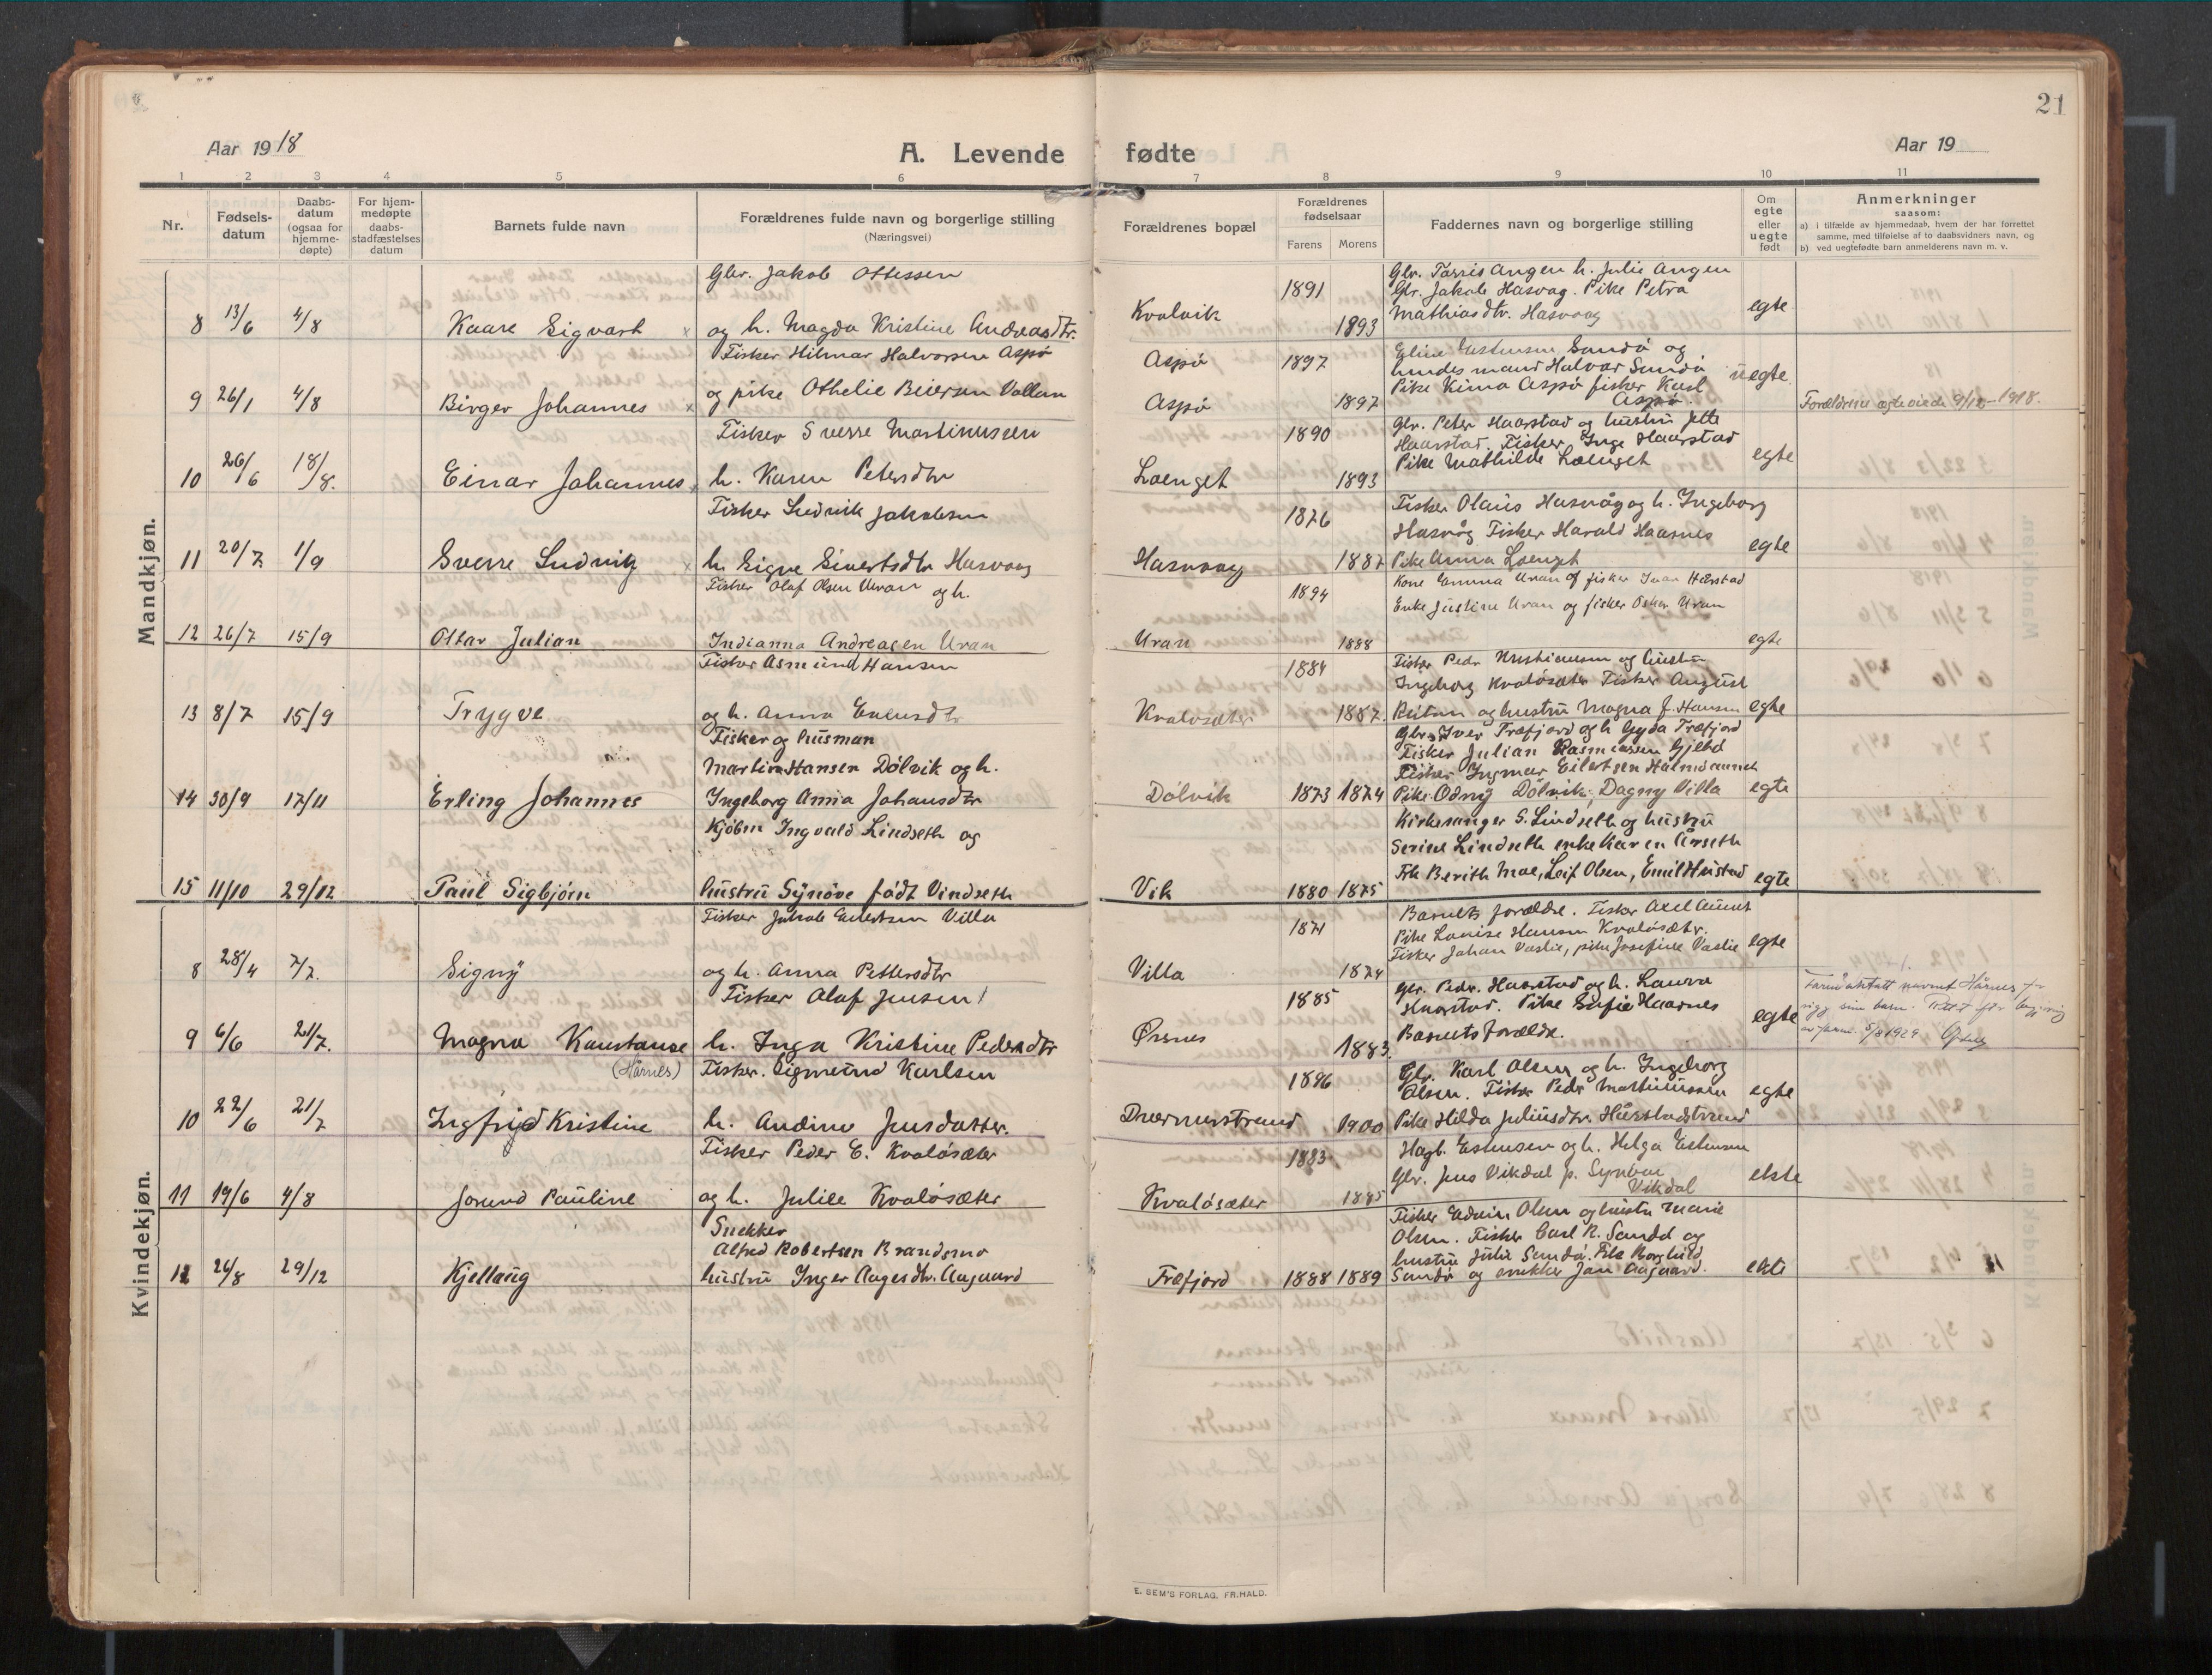 21
Aar 1918
A. Levende fødte
Aar 19
1 2 3 4 5 6 7 8 9 10 11
Nr.
Fødsels-
datum
Daabs-
datum
(ogsaa for
hjemme-
døpte)
For hjem-
medøpte
daabs-
stadfæstelses
datum
Barnets fulde navn
Forældrenes fulde navn og borgerlige stilling
(Næringsvei)
Forældrenes bopæl
Forældrenes
fødselsaar
Farens Morens
Faddernes navn og borgerlige stilling
Om
egte
eller
uegte
født
Anmerkninger
saasom:
a) i tilfælde av hjemmedaab, hvem der har forrettet
samme, med tilføielse af to daabsvidners navn, og
b) ved uegtefødte barn anmelderens navn m. v.
Mandkjøn.
Gbr. Jakob Ottessen
8 13/6 4/8 Kaare Sigvart x og h. Magda Kristine Andreasdtr.
Kvalvik 1891 1893
Gbr. Tarris Angen h. Julie Angen
Gbr. Jakob Hasvag. Pike Petra
Mathiasdtr. Hasvaag
egte
Fisker Hilmar Halvorsen Aspø
9 26/1 4/8 Birger Johannes x og pike Othelie Beiersen Vollan
Aspø 1897
Aspø 1897
Eline Estensen Sandø og
hendes mand Halvor Sandø
Pike Kima Aspø fisker Karl
Aspø.
uegte
Forældrene egteviede 9/12-1918.
Fisker Sverre Martinussen
10 26/6 18/8. Einar Johannes x h. Karen Petersdtr
Loenget 1890 1893
Gbr. Peter Haarstad og hustru Jette
Haarstad. Fisker Inge Haarstad
Pike Mathilde Loenget
egte
Fisker Ludvik Jakobsen
11 20/7 1/9 Sverre Ludvik x h. Signe Sivertsdtr Hasvaag
Hasvaag 1876 1887
Fisker Olaus Hasvåg og h. Ingeborg
Hasvåg Fisker Harald Haarnes
Pike Anna Loenget
egte
Fisker Olaf Olsen Uran og h.
12 26/7 15/9 Ottar Julian Indianna Andreasen Uran
Uran 1894 1888
Kone Emma Uran og fisker Ivar Hårstad
Enke Justine Uran og fisker Oskar Uran
egte
Fisker Asmund Hansen
13 8/7 15/9 Trygve og h. Anna Evensdtr
Kvaløsæter 1884 1887.
Fisker Peder Kristiansen og hustru
Ingeborg Kvaløsæter Fisker August
Reitan og hustru Magna f. Hansen
egte
Fisker og husman
Martin Hansen Dølvik og h.
14 30/9 17/11 Erling Johannes Ingeborg Anna Johansdtr
Dølvik 1873 1874
Gbr. Iver Træfjord og h Gyda Træfjord
Fisker Julian Rasmussen Gjeld
Fisker Ingmar Eilertsen Halmøaunet
Pike Odny Dølvik, Dagny Villa
egte
Kjøbm Ingvald Lindseth og
15 11/10 29/12 Paul Sigbjørn hustru Synøve født Vindseth
Vik 1880 1875
Kirkesanger S. Lindseth og hustru
Serine Lindseth enke Karen Årseth
Frk Berith Moe, Leif Olsen, Emil Hustad
egte
Kvindekjøn.
Fisker Jakob Eilertsen Villa
8 28/4 7/7. Signy og h. Anna Pettersdtr
Villa 1871 1874
Barnets forældre. Fisker Axel Aunet
Pike Louise Hansen Kvaløsæter.
Fisker Johan Vaslie, pike Josefine Vaslie
egte
Fisker Olaf Jensen
9 6/6 21/7. Magna Konstanse h. Inga Kristine Pedersdtr
(Hårnes)
Ørsnes 1885 1883.
Gbr. Peder. Haarstad og h. Laura
Haarstad. Pike Sofie Haarnes
Barnets forældre.
egte
navnet Hårnes for
sine barn.
5/8 1929
Fisker. Sigmund Karlsen
10 22/6 21/7 Ingfrid Kristine h. Andine Jensdatter.
1896 1900
Gbr. Karl Olsen og h. Ingeborg
Olsen. Fisker Peder Martinussen
Pike Hilda Juliusdtr. Hårstadstrand
egte
Fisker Peder E. Kvaløsæter
11 19/6 4/8 Jorund Pauline og h. Julie Kvaløsæter
Kvaløsæter 1883 1885
Hagb. Estensen og h. Helga Estensen
Gbr. Jens Vikdal p. Synöve
Vikdal
ekte
Snekker
Alfred Robertsen Brandsmo
12 26/8 29/12 Kjellaug hustru Inger Aagesdtr. Aagaard
Træfjord 1888 1889
Fisker Edvin Olsen og hustru Marie
Olsen. Fisker Carl R. Sandø og
hustru Julie Sandø. Pike Borghild
Sandø og snekker Jan Aagaard.
ekte
E. SEM'S FORLAG, FR.HALD.